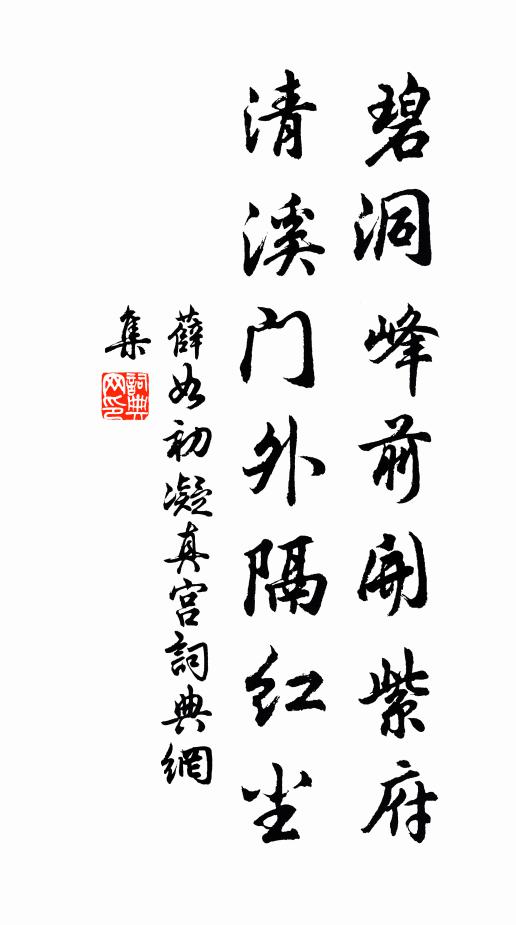 碧洞峰前開紫府
清溪门外隔红尘
薛如初凝真宫詞典網
集
詞典网印